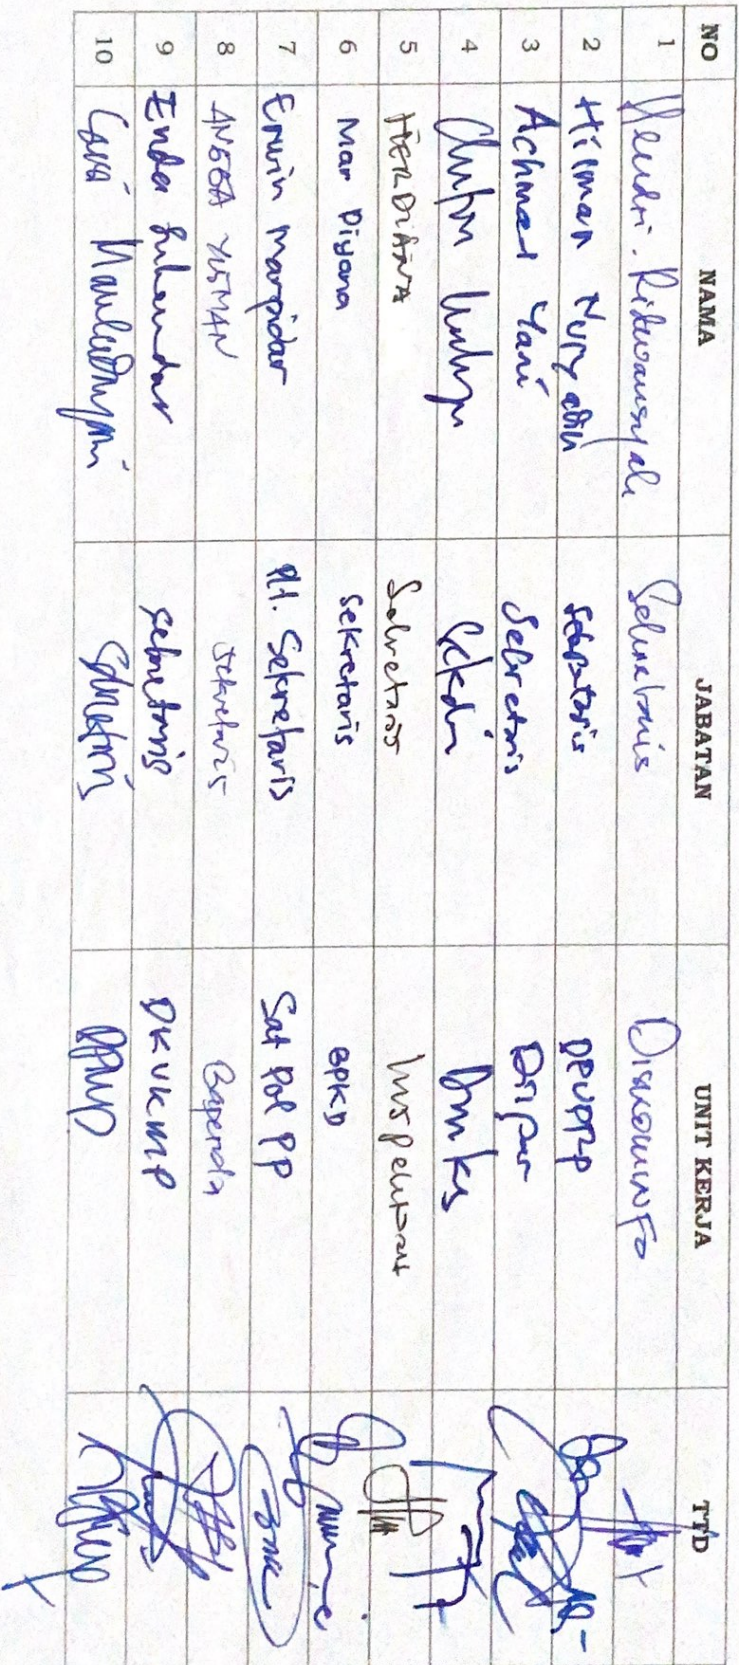 NO NAMA JABATAN UNIT KERJA TTD
1 Hendri. Ridwansyah Sekretaris DISKOMINFO
2 Hilman Nuryadin Sekretaris DPUPRP
3 Achmad Yani Sekretaris Dispar
4 Sekdin Dinkes
5 HERDIANA Sekretaris Inspektorat
6 Mar Diyana Sekretaris BPKD
7 Erwin Marpidar Plt. Sekretaris Sat Pol PP
8 ANGGA YUSMAN Sekretaris Bapenda
9 Enda Suhendar Sekretaris DKUKMP
10 Sekretaris